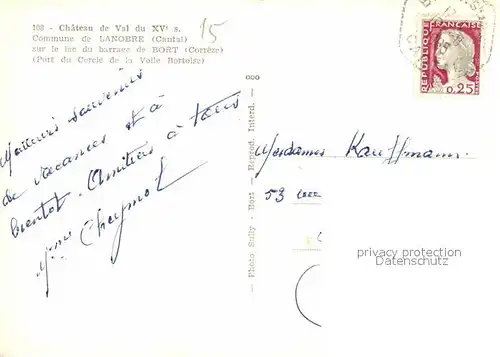 108 - Château de Val du XVᵉ s.
Commune de LANOBRE (Cantal)
sur le lac du barrage de BORT (Corrèze)
(Port du Cercle de la Voile Bortoise)
15
Meilleurs souvenirs
de vacances et à
bientôt. Amitiés à tous
Mme
Photo Sully - Bort - Reprod. Interd.
RÉPUBLIQUE FRANÇAISE
0,25
Mesdames Kauffmann
53
privacy protection
Datenschutz